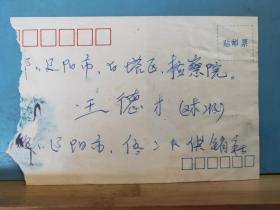 贴邮票
辽阳市,白塔区,检察院。
王德才(收)
辽阳市,佟二人供销社